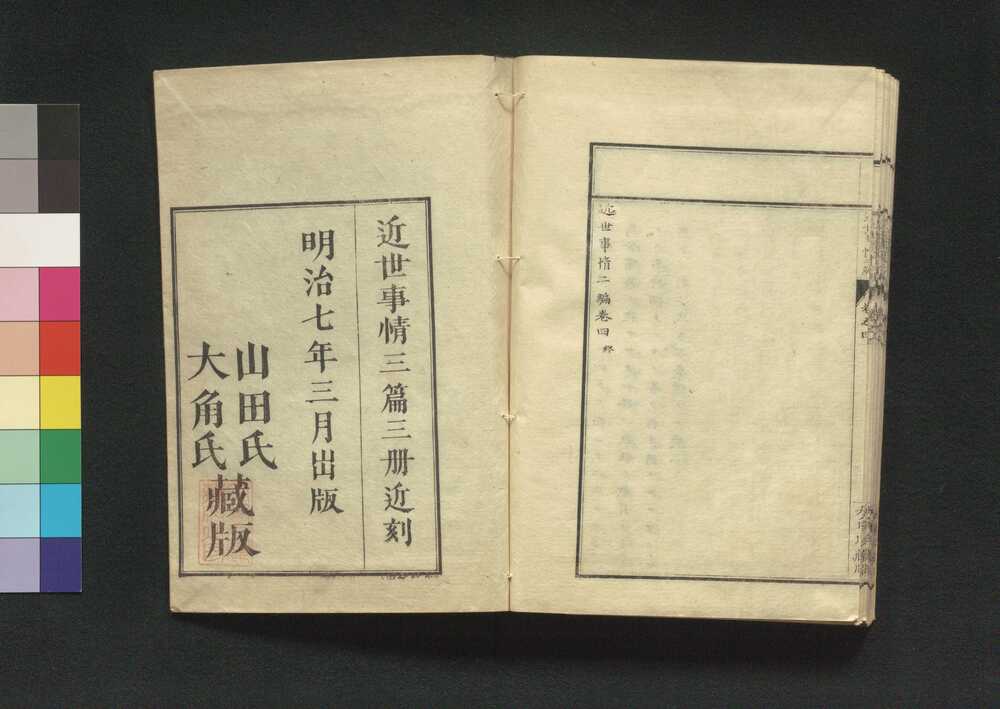 近世事情二編巻四 終
近世事情三篇三册近刻
明治七年三月出版
山田氏
大角氏
藏版